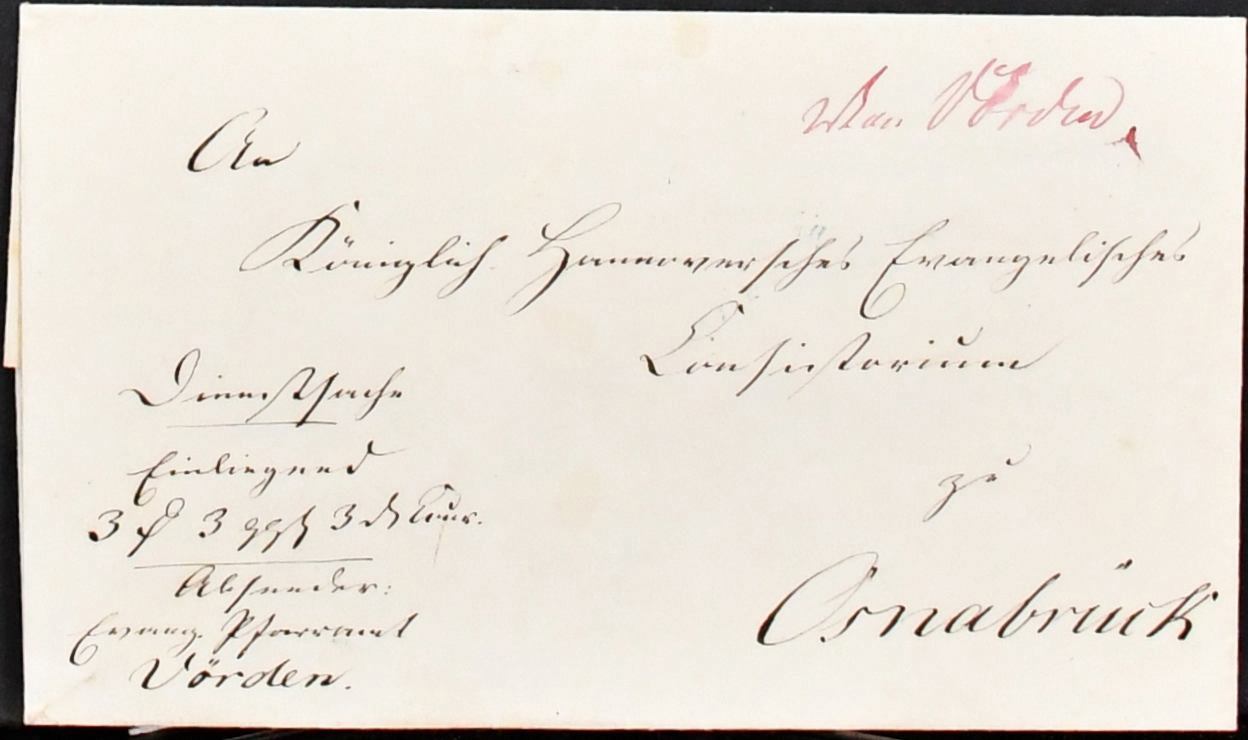 Von Vörden
An
Königlich Hannoversches Evangelisches
Consistorium
Dienstsache
Einliegend
3 ₰ 3 ggl 3 d Cour.
zu
Absender:
Evang. Pfarramt
Osnabrück
Vörden.